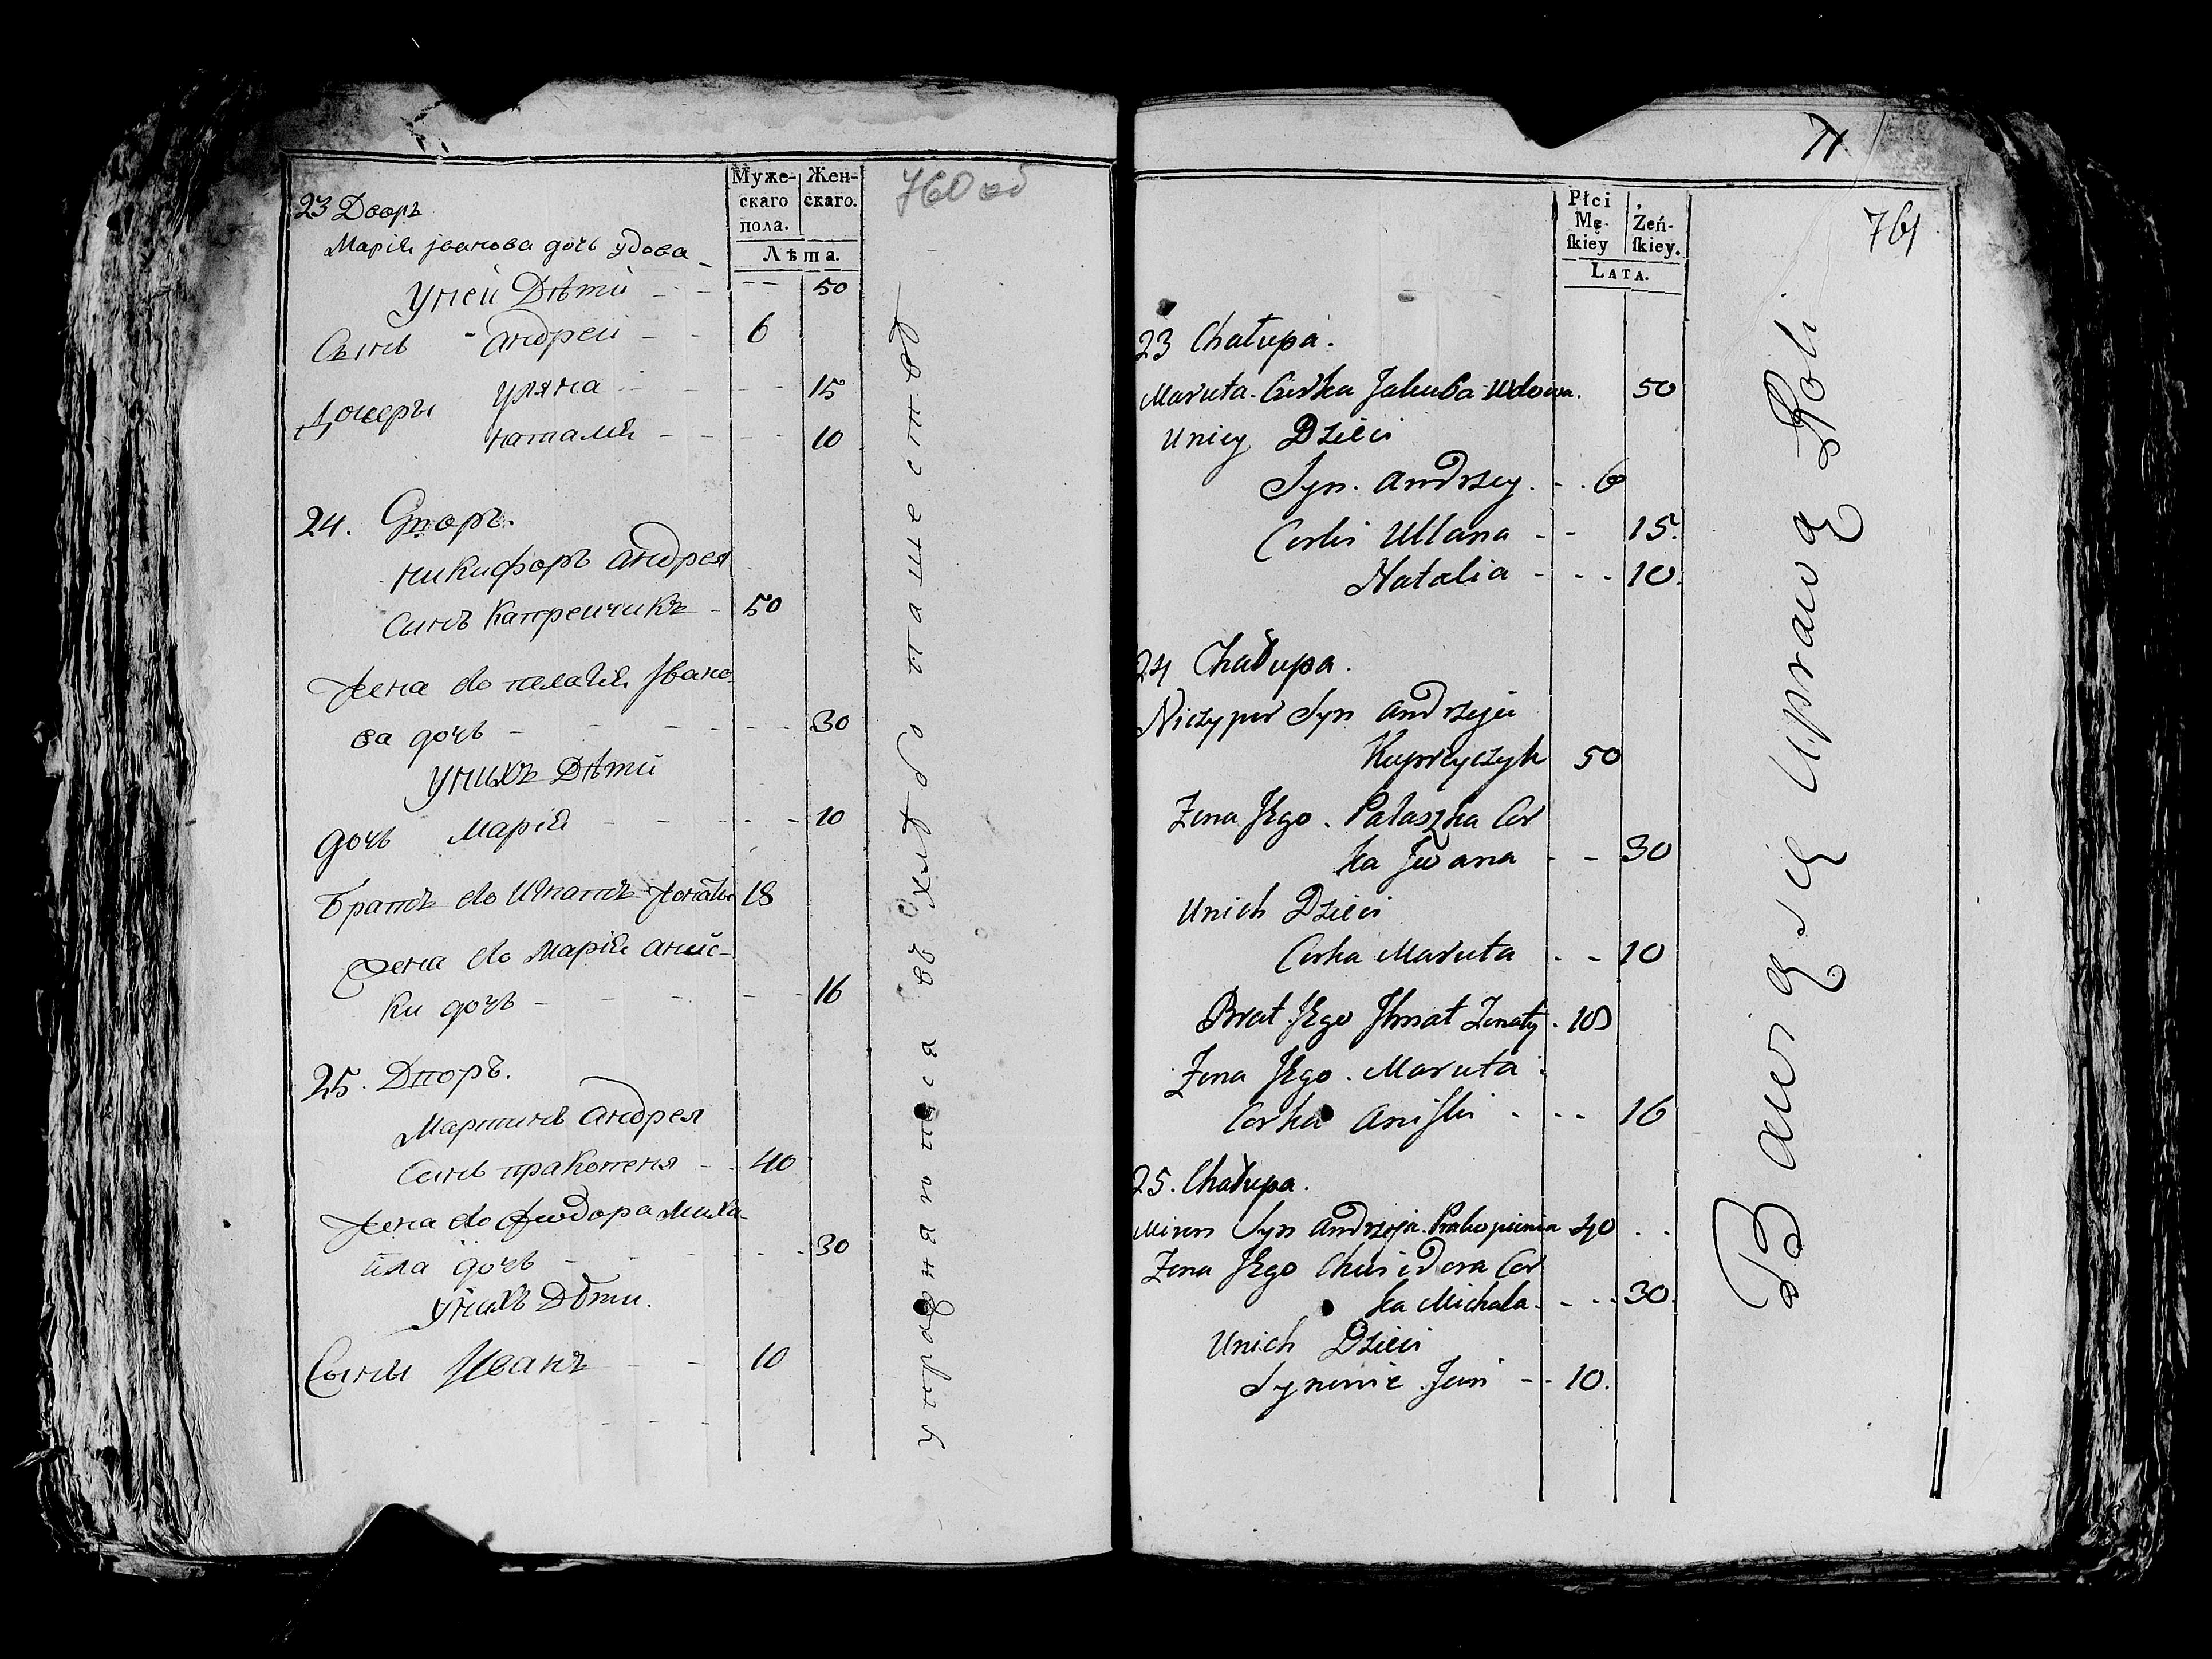 Муже-
скаго
пола.
Жен-
скаго.
Лѣта.
760 об
23 Дворъ
Марія јванова дочь удова
Унеи Дѣти - - - - 50
Сынъ - андреи - - 6
Дочеры уляна - - - - 15
наталія - - - - 10
24. Дворъ.
никифоръ андрея
Сынъ Капреичикъ - 50
Жена его пелагія Јвано-
ва дочь - - - - - 30
Унихъ Дѣти
дочь Марія - - - - 10
Братъ его Игнатъ женатъ 18
Жена его Марія анис-
ки дочь - - - - - 16
25. Дворъ.
Мартинъ андрея
Сынъ пракопеня - - 40
Жена его федора Миха-
ила дочь - - - - 30
Унихъ Дѣти.
Сыны Иванъ - - 10
упражняюпся въ хлѣбопашествѣ
71
761
Płci
Mę-
ſkiey
Żeń-
ſkiey.
LATA.
23 Chałupa.
Maruta. Curka Jakuba Wdowa. 50
Uniey Dzieci
Syn. Andrzey. - . 6
Corki Ullana - - 15.
Natalia - - - 10.
24 Chałupa.
Niczypor Syn Andrzeja
Kupreyczyk 50
Zona Jego. Pałaszka Cor
ka Jwana - - 30
Unich Dzieci
Corka Maruta . - 10
Brat Jego Jhnat Zonaty. 18
Zona Jego. Maruta.
Corka Aniſki . - - 16
25. Chałupa.
Miron Syn Andrzeja. Prakopienia 40 . .
Zona Jego Chwiedora Cor
ka Michała. - - . 30.
Unich Dzieci
Synowie Jan - - 10.
Bawią się Uprawą Roli